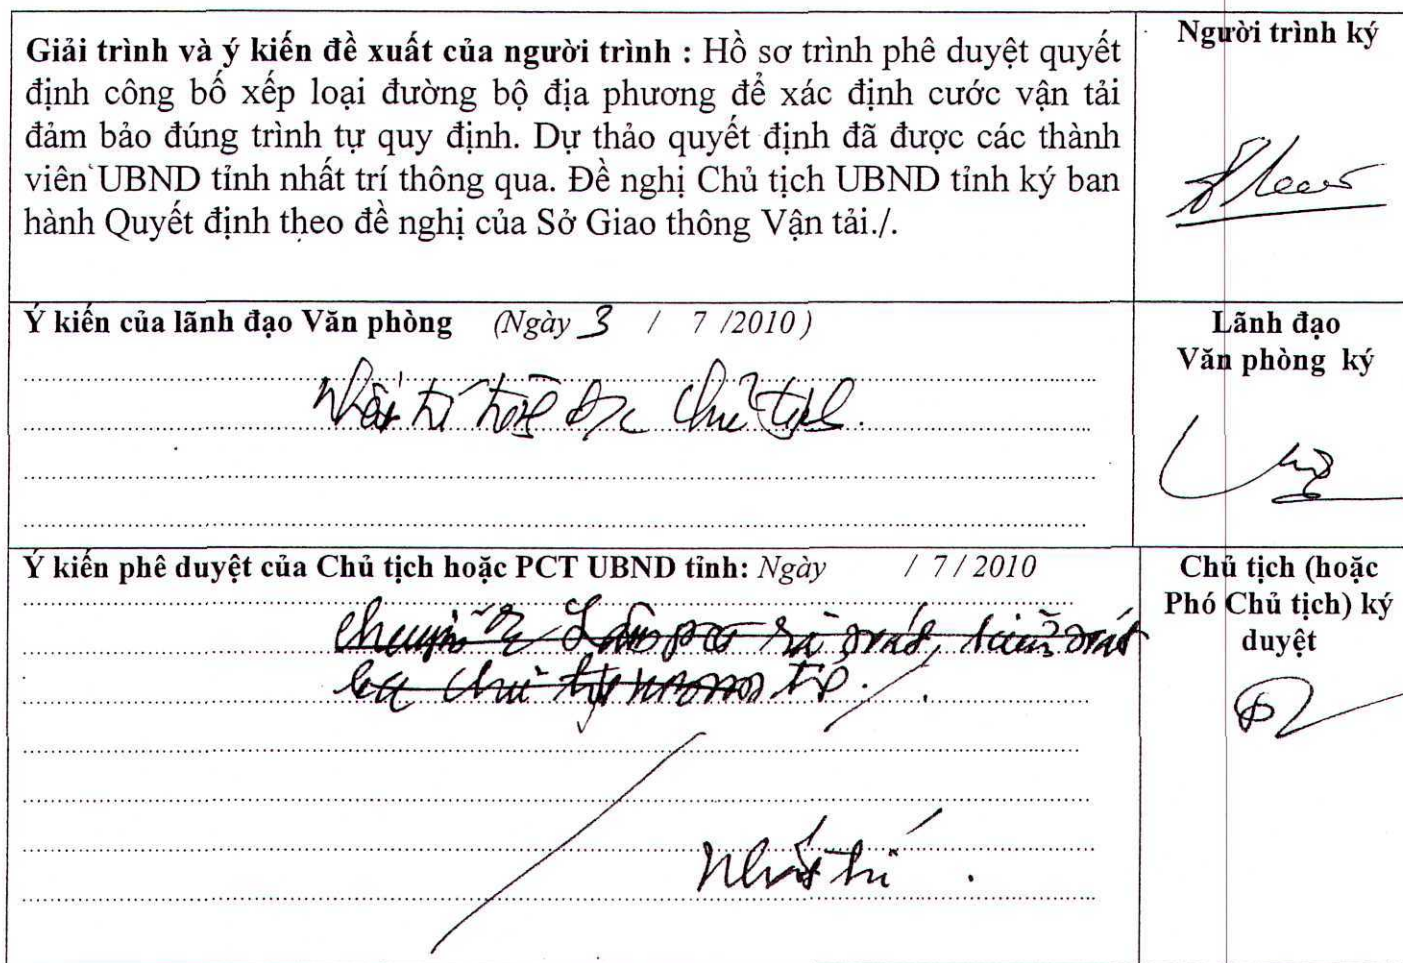 Giải trình và ý kiến đề xuất của người trình : Hồ sơ trình phê duyệt quyết
định công bố xếp loại đường bộ địa phương để xác định cước vận tải
đảm bảo đúng trình tự quy định. Dự thảo quyết định đã được các thành
viên UBND tỉnh nhất trí thông qua. Đề nghị Chủ tịch UBND tỉnh ký ban
hành Quyết định theo đề nghị của Sở Giao thông Vận tải./.
Người trình ký
Ý kiến của lãnh đạo Văn phòng (Ngày 3 / 7 /2010 )
Nhất trí trình Đ/c Chủ tịch.
Lãnh đạo
Văn phòng ký
Ý kiến phê duyệt của Chủ tịch hoặc PCT UBND tỉnh: Ngày / 7 / 2010
Nhất trí .
Chủ tịch (hoặc
Phó Chủ tịch) ký
duyệt